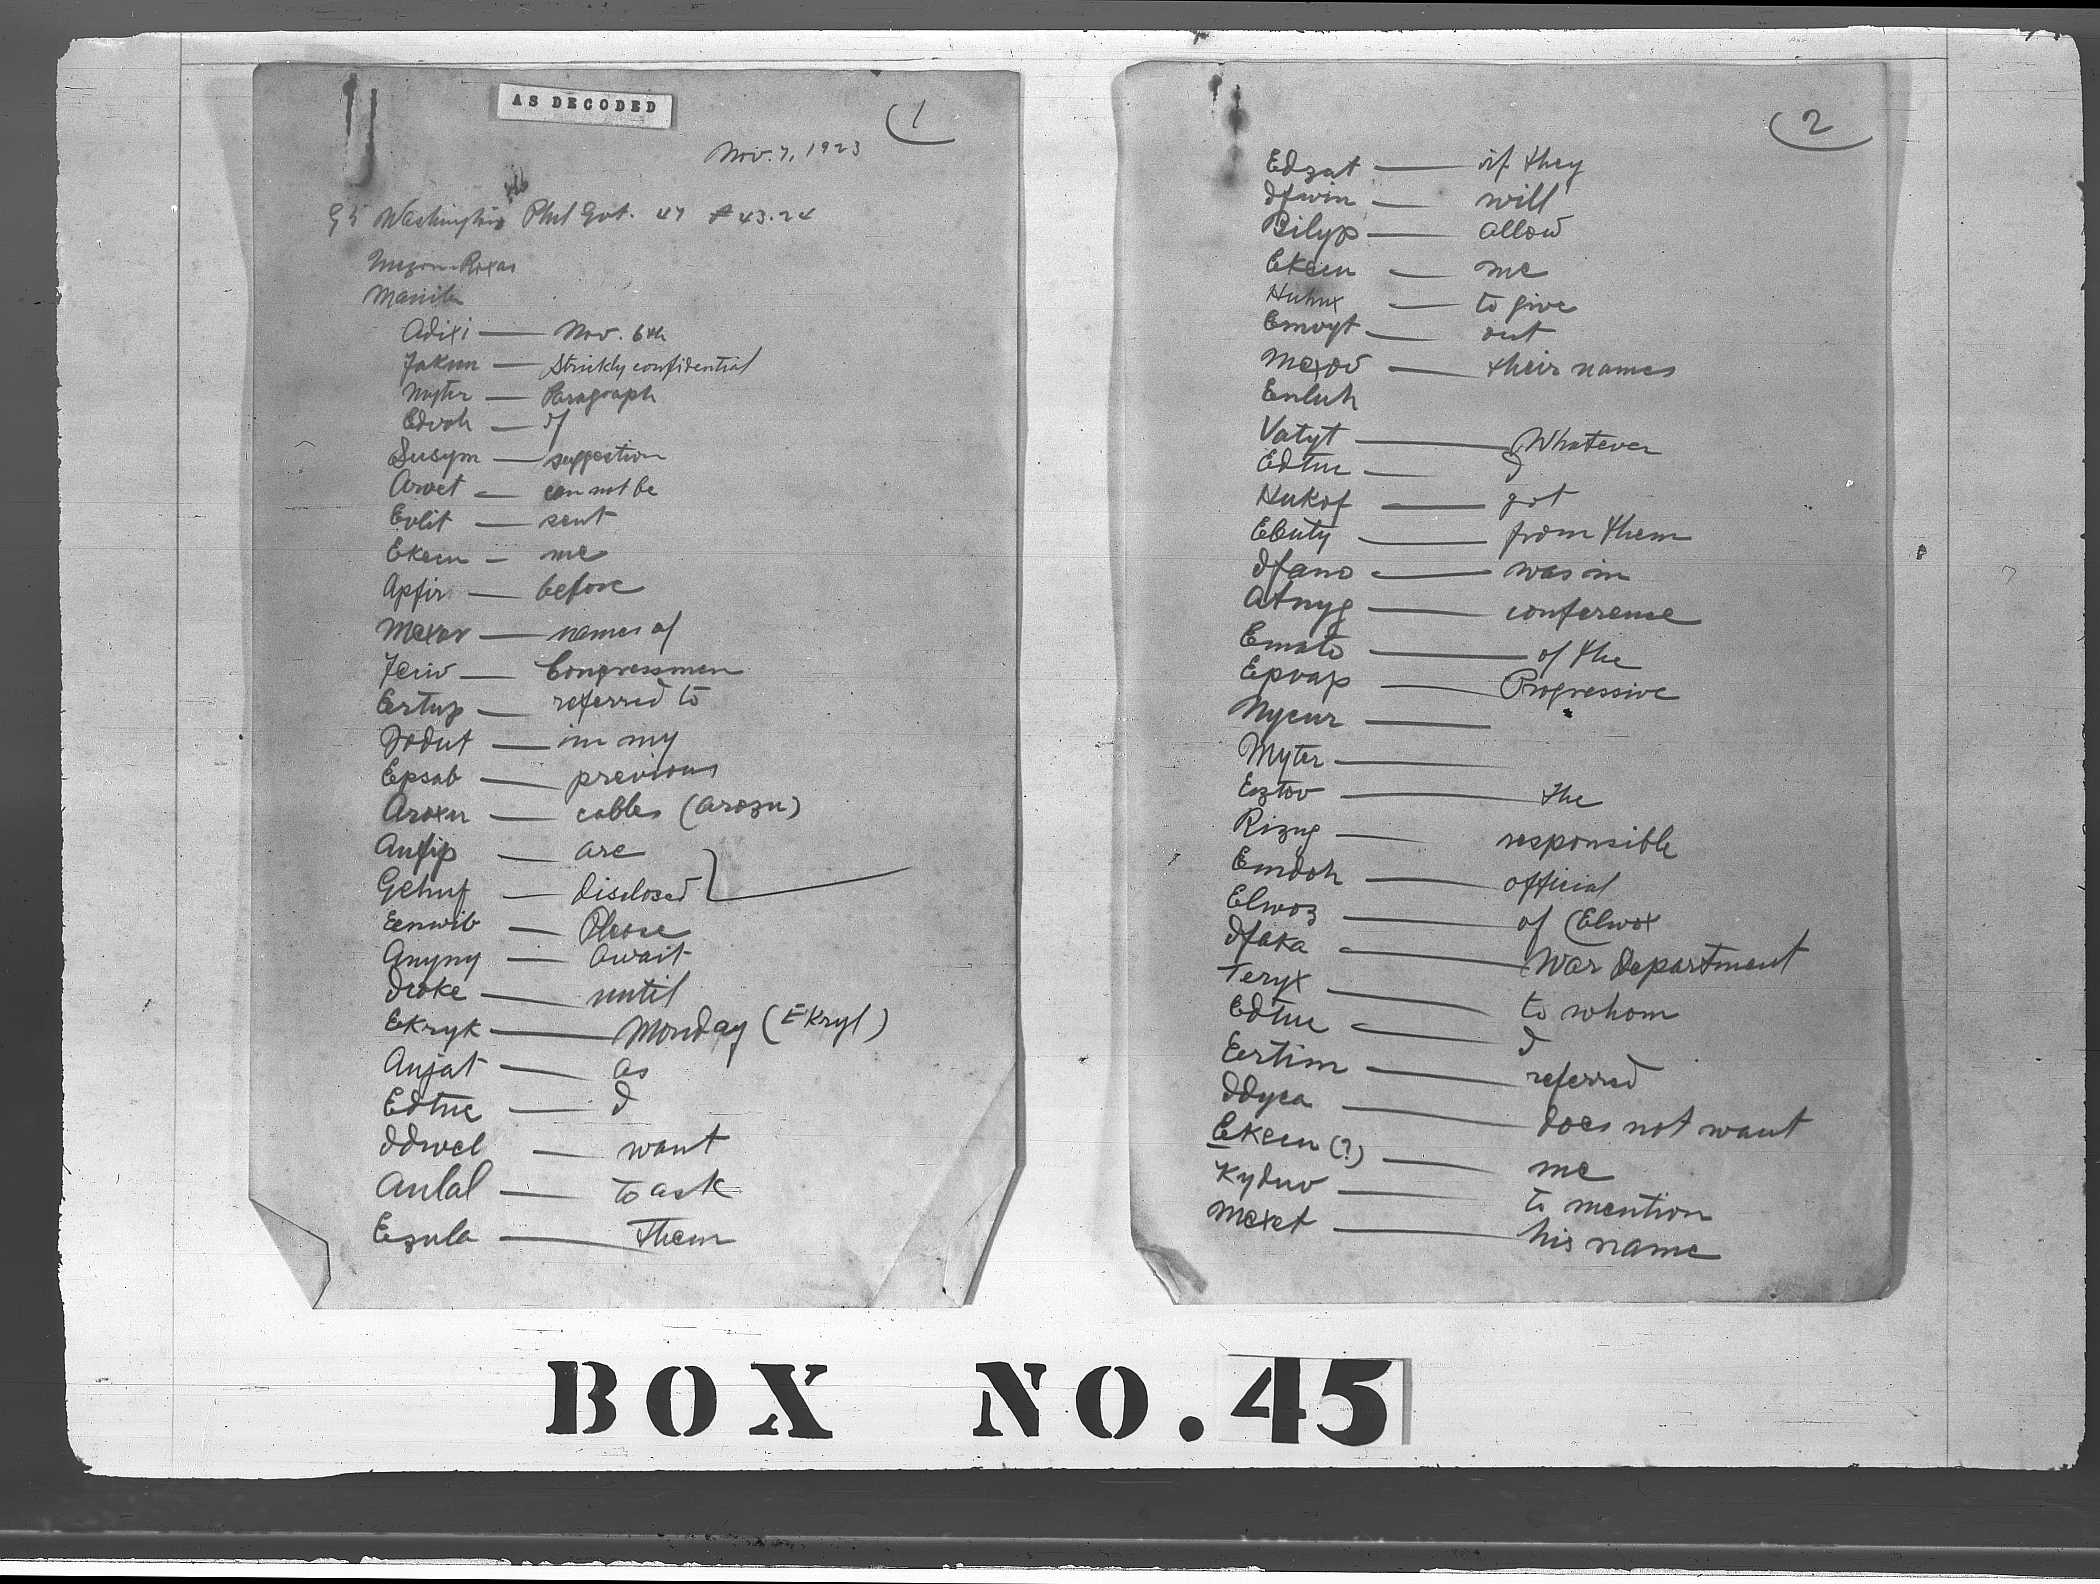 AS DECODED
1
Nov. 7, 1923
Washington Phil Govt. 47 43.24
Roxas
Manila
Adixi — Nov. 6th
— Strictly confidential
Myter — Paragraph
Edvoh — If
Susym — suggestion
Arvet — can not be
Evlit — sent
Ekeen — me
Apfir — before
Mexar — names of
— Congressmen
Ertup — referred to
— in my
Epsab — previous
Aroxu — cables (Arozu)
Anfip — are
Gehuf — disclosed
Eenwib — Please
Anyny — Await
— until
Ekryk — Monday (Ekryl)
Anjat — as
Edtuc — I
Idwel — want
Anlal — to ask
Ezula — Them
2
Edzat — if they
Ifwin — will
Bilyp — allow
Ekeen — me
— to give
Emvyt — out
Mexov — their names
Enluh
Vatyt — Whatever
Edtuc — I
Hukof — got
— from them
Ifano — was in
Atnyg — conference
Emato — of the
Epvap — Progressive
Nyeur —
Myter —
Eztov — the
Rizug — responsible
Emdoh — official
Elwoz — of (Elwox
Ifaka — War Department
Teryx — to whom
Edtuc — I
Eertim — referred
Idyca — does not want
Ekeen (?) — me
Kyduv — to mention
Mexet — his name
BOX NO. 45